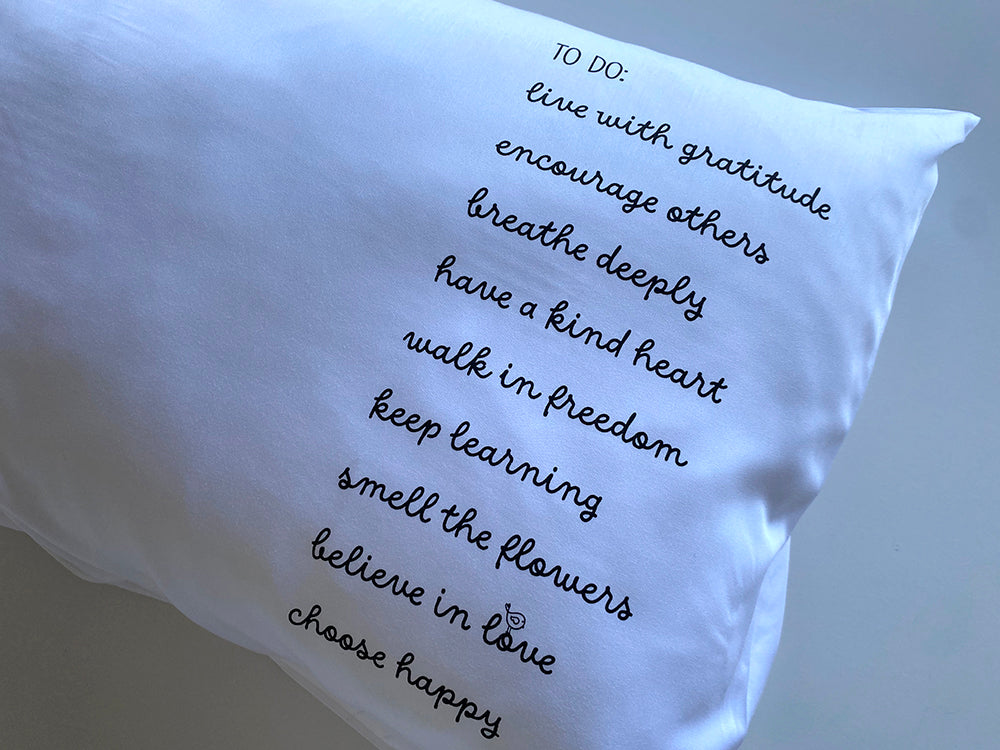 TO DO:
live with gratitude
encourage others
breathe deeply
have a kind heart
walk in freedom
keep learning
smell the flowers
believe in love
choose happy